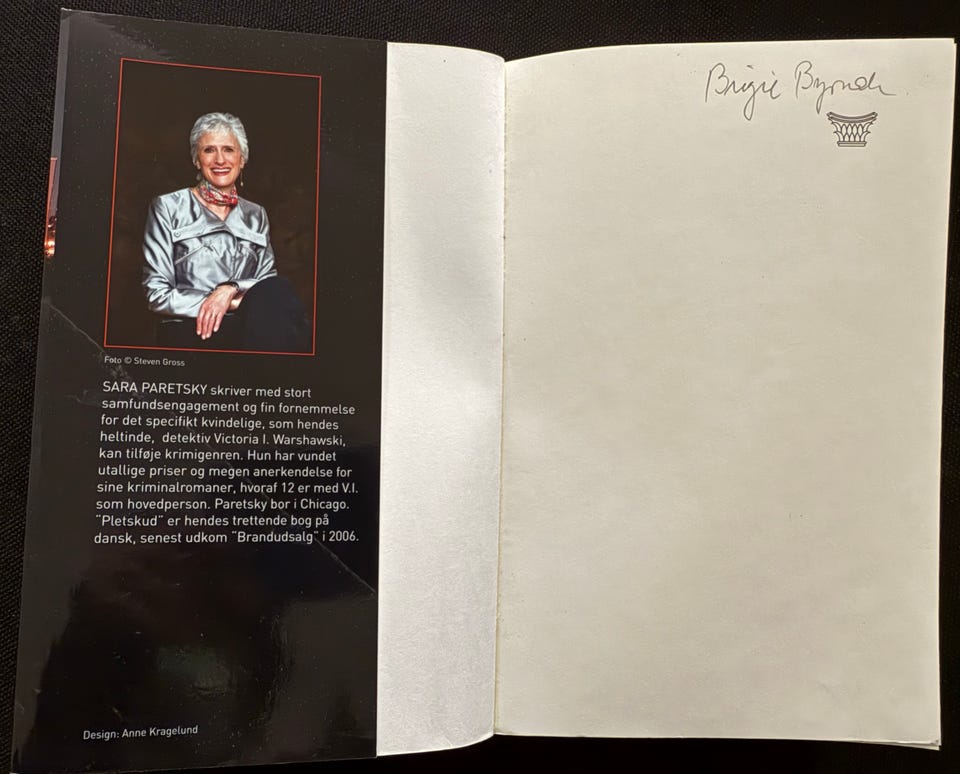 Foto © Steven Gross
SARA PARETSKY skriver med stort
samfundsengagement og fin fornemmelse
for det specifikt kvindelige, som hendes
heltinde, detektiv Victoria I. Warshawski,
kan tilføje krimigenren. Hun har vundet
utallige priser og megen anerkendelse for
sine kriminalromaner, hvoraf 12 er med V.I.
som hovedperson. Paretsky bor i Chicago.
"Pletskud" er hendes trettende bog på
dansk, senest udkom "Brandudsalg" i 2006.
Design: Anne Kragelund